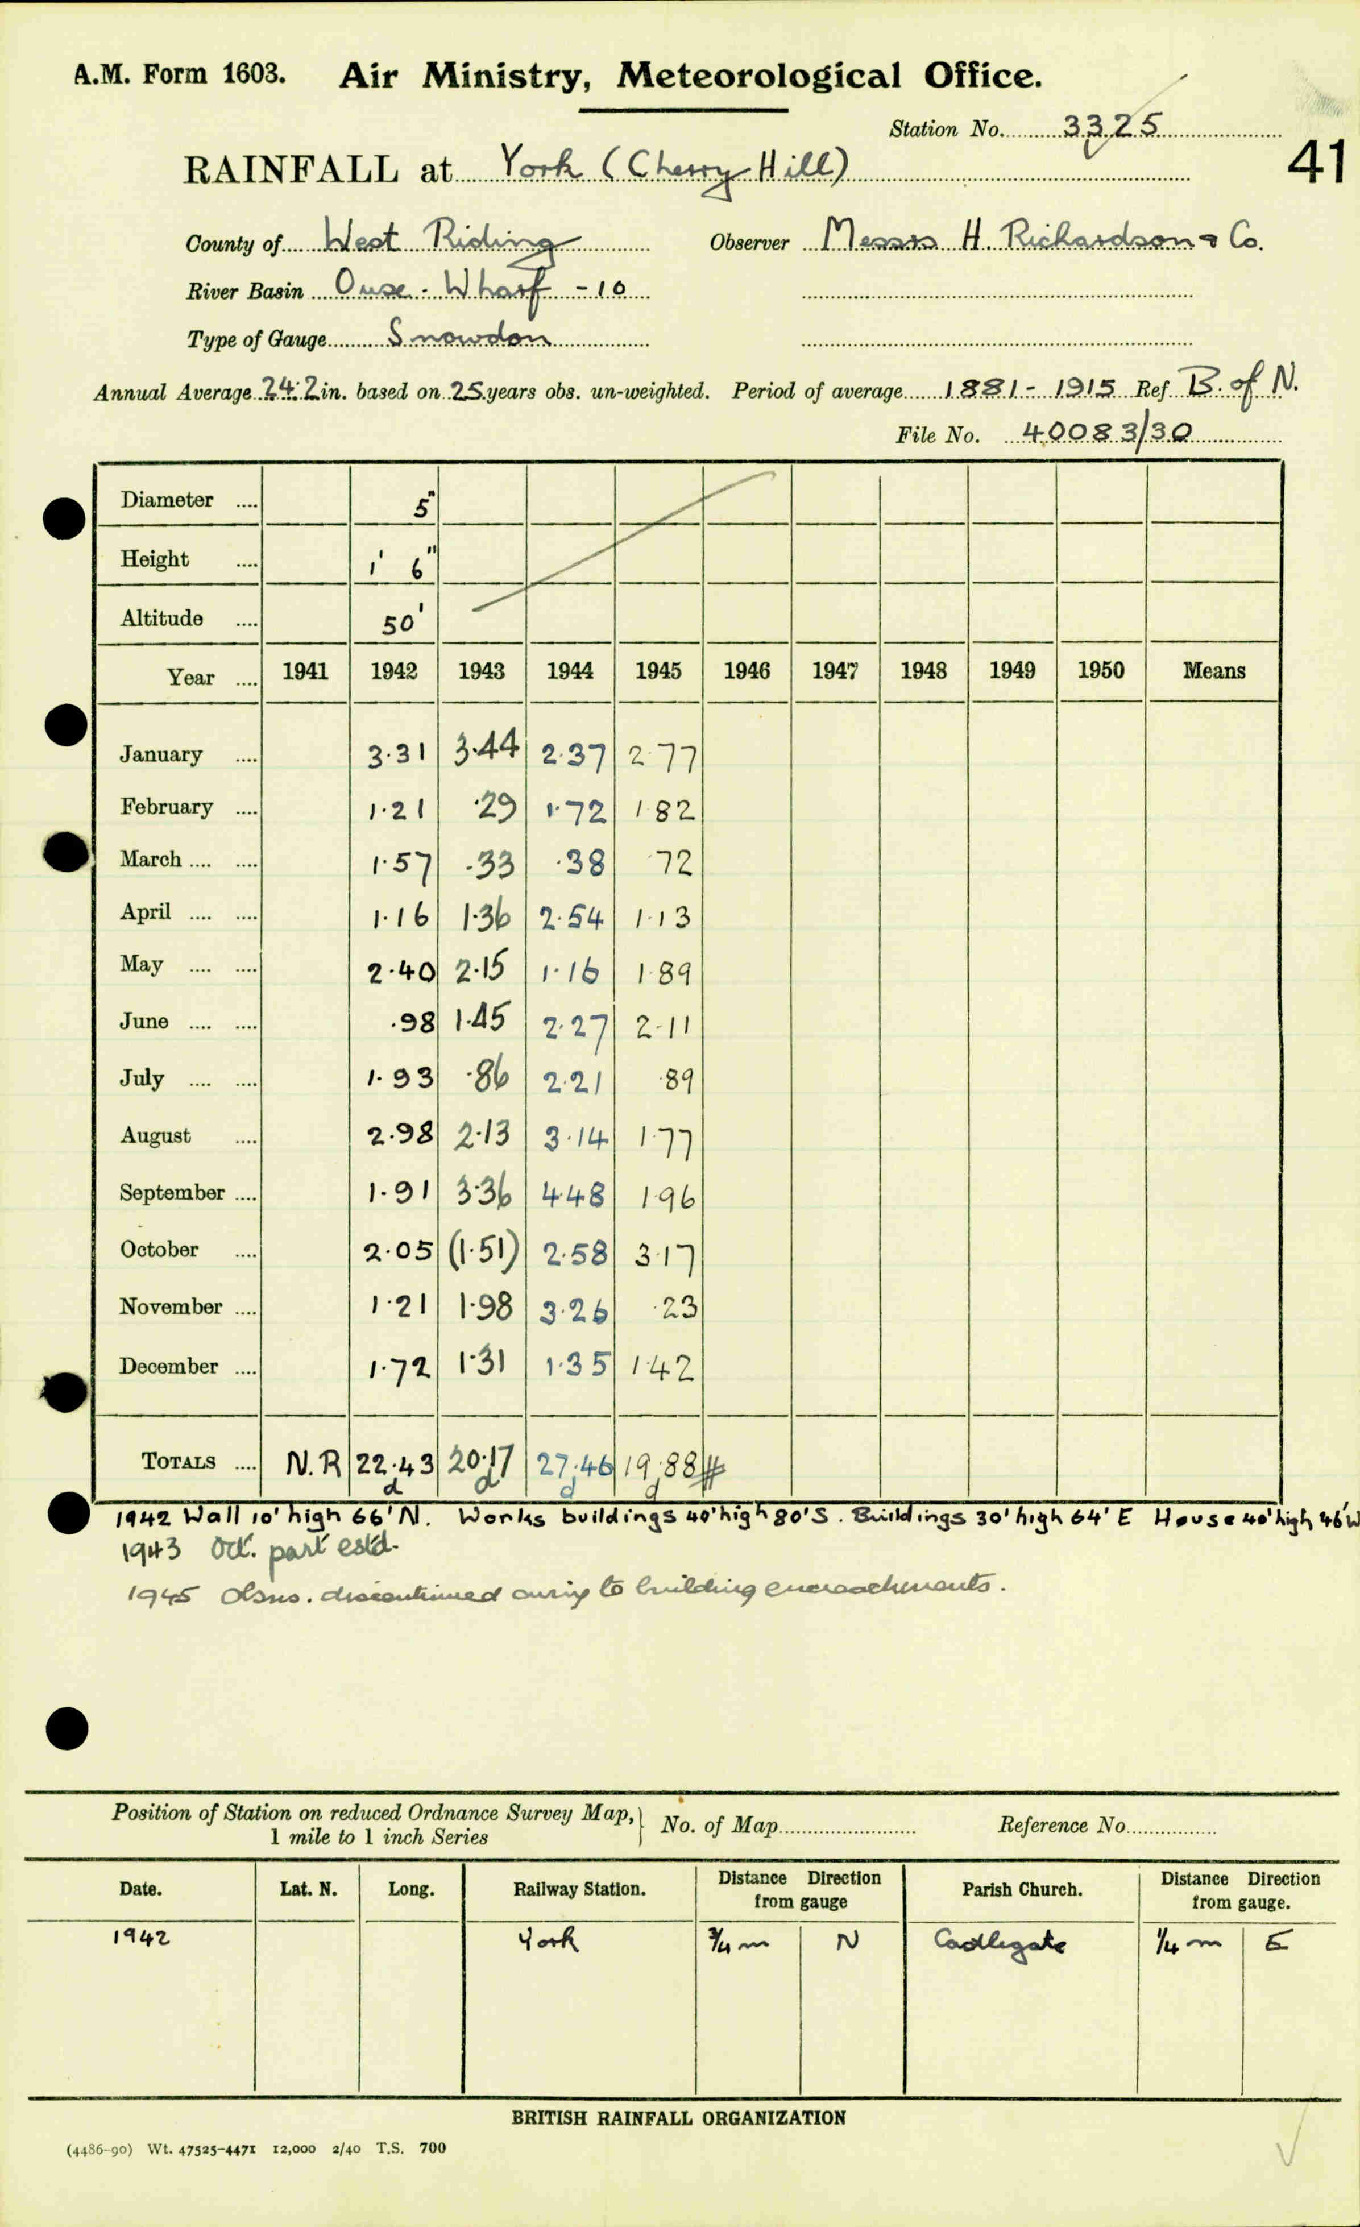 A.M. Form 1603. Air Ministry, Meteorological Office.
Station No. 3325
41
RAINFALL at York (Cherry Hill)
County of West Riding Observer Messrs H. Richardson & Co.
River Basin Ouse - Wharf - 10
Type of Gauge Snowdon
Annual Average 24.2 in. based on 25 years obs. un-weighted. Period of average 1881 - 1915 Ref B. of N.
File No. 40083/30
Diameter .... 5"
Height .... 1' 6"
Altitude .... 50'
Year .... 1941 1942 1943 1944 1945 1946 1947 1948 1949 1950 Means
January .... 3.31 3.44 2.37 2.77
February .... 1.21 .29 1.72 1.82
March .... .... 1.57 .33 .38 .72
April .... .... 1.16 1.36 2.54 1.13
May .... .... 2.40 2.15 1.16 1.89
June .... .... .98 1.45 2.27 2.11
July .... .... 1.93 .86 2.21 .89
August .... 2.98 2.13 3.14 1.77
September .... 1.91 3.36 4.48 1.96
October .... 2.05 (1.51) 2.58 3.17
November .... 1.21 1.98 3.26 .23
December .... 1.72 1.31 1.35 1.42
TOTALS .... N.R 22.43 20.17 27.46 19.88 #
d d d d
1942 Wall 10' high 66' N. Works buildings 40' high 80' S. Buildings 30' high 64' E House 40' high 46' W
1943 Oct. part estd.
1945 Obsns. discontinued owing to building encroachments.
Position of Station on reduced Ordnance Survey Map, } No. of Map Reference No.
1 mile to 1 inch Series
Date. Lat. N. Long. Railway Station. Distance Direction from gauge Parish Church. Distance Direction from gauge.
1942 York 3/4 m N 1/4 m E
BRITISH RAINFALL ORGANIZATION
(4486-90) Wt. 47525-4471 12,000 2/40 T.S. 700